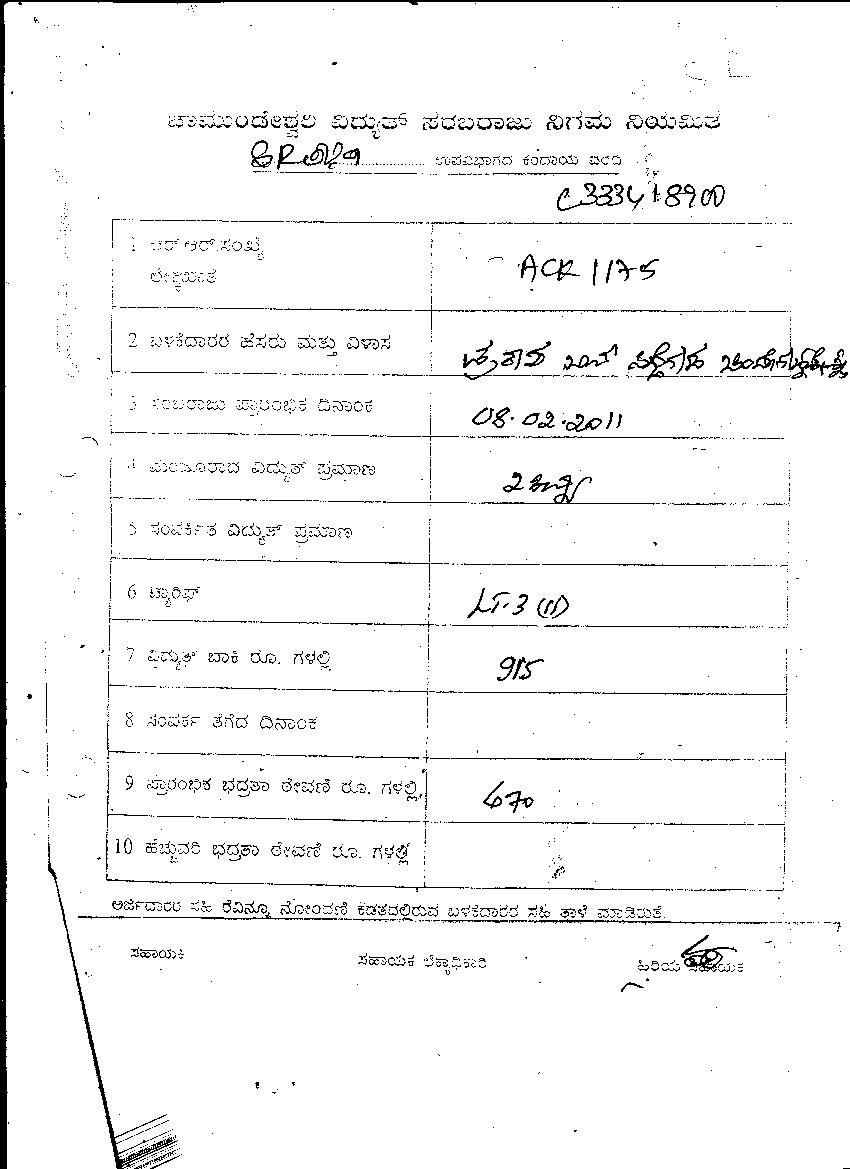 ಚಾಮುಂಡೇಶ್ವರಿ ವಿದ್ಯುತ್ ಸರಬರಾಜು ನಿಗಮ ನಿಯಮಿತ
ಉಪವಿಭಾಗದ ಕಂದಾಯ ವಿಳಿ
333418900
1 ಆರ್.ಆರ್.ಸಂಖ್ಯೆ ACK 1175
ಲೆಕ್ಕಖಾತೆ
2 ಬಳಕೆದಾರರ ಹೆಸರು ಮತ್ತು ವಿಳಾಸ
3 ಸರಬರಾಜು ಪ್ರಾರಂಭಿಕ ದಿನಾಂಕ 08.02.2011
4 ಮಂಜೂರಾದ ವಿದ್ಯುತ್ ಪ್ರಮಾಣ 2
5 ಸಂಪರ್ಕಿತ ವಿದ್ಯುತ್ ಪ್ರಮಾಣ
6 ಟ್ಯಾರಿಫ್ LT-3 (11)
7 ವಿದ್ಯುತ್ ಬಾಕಿ ರೂ. ಗಳಲ್ಲಿ 915
8 ಸಂಪರ್ಕ ತೆಗೆದ ದಿನಾಂಕ
9 ಪ್ರಾರಂಭಿಕ ಭದ್ರತಾ ಠೇವಣಿ ರೂ. ಗಳಲ್ಲಿ, 670
10 ಹೆಚ್ಚುವರಿ ಭದ್ರತಾ ಠೇವಣಿ ರೂ. ಗಳಲ್ಲಿ
ಅರ್ಜಿದಾರರ ಸಹಿ ರೆವಿನ್ಯೂ ನೋಂದಣಿ ಕಡತದಲ್ಲಿರುವ ಬಳಕೆದಾರರ ಸಹಿ ತಾಳೆ ಮಾಡಿರುತ್ತೆ.
ಸಹಾಯಕ ಸಹಾಯಕ ಲೆಕ್ಕಾಧಿಕಾರಿ ಹಿರಿಯ ಸಹಾಯಕ